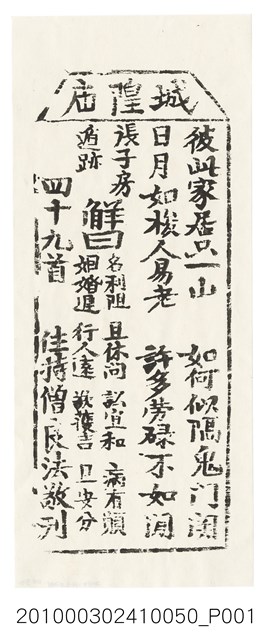 城隍庙
彼此家居只一山 如何似隔鬼門關
日月如梭人易老 許多勞碌不如閒
張子房
遁跡
解曰
名利阻 且休問 訟宜和 病有願
姻婚遲 行人遠 獲吉 且安分
四十九首 住持僧良法敬刋
201000302410050_P001